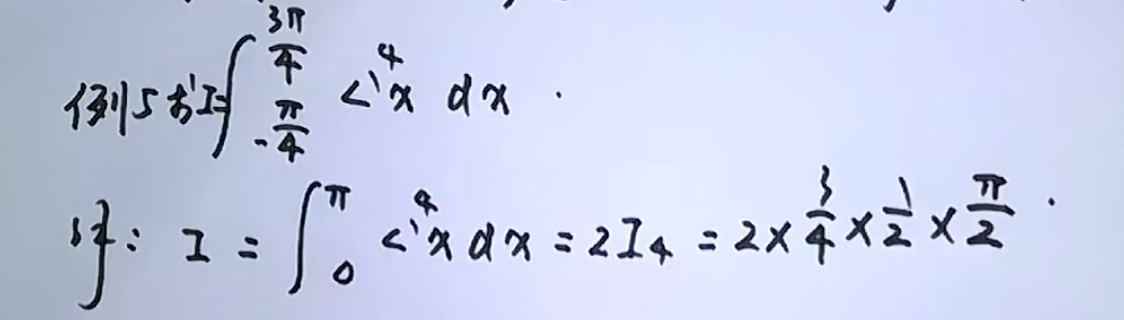 例5 求I=∫_{-π/4}^{3π/4} cos⁴x dx.
解: I = ∫_0^π cos⁴x dx = 2I₄ = 2×3/4×1/2×π/2.